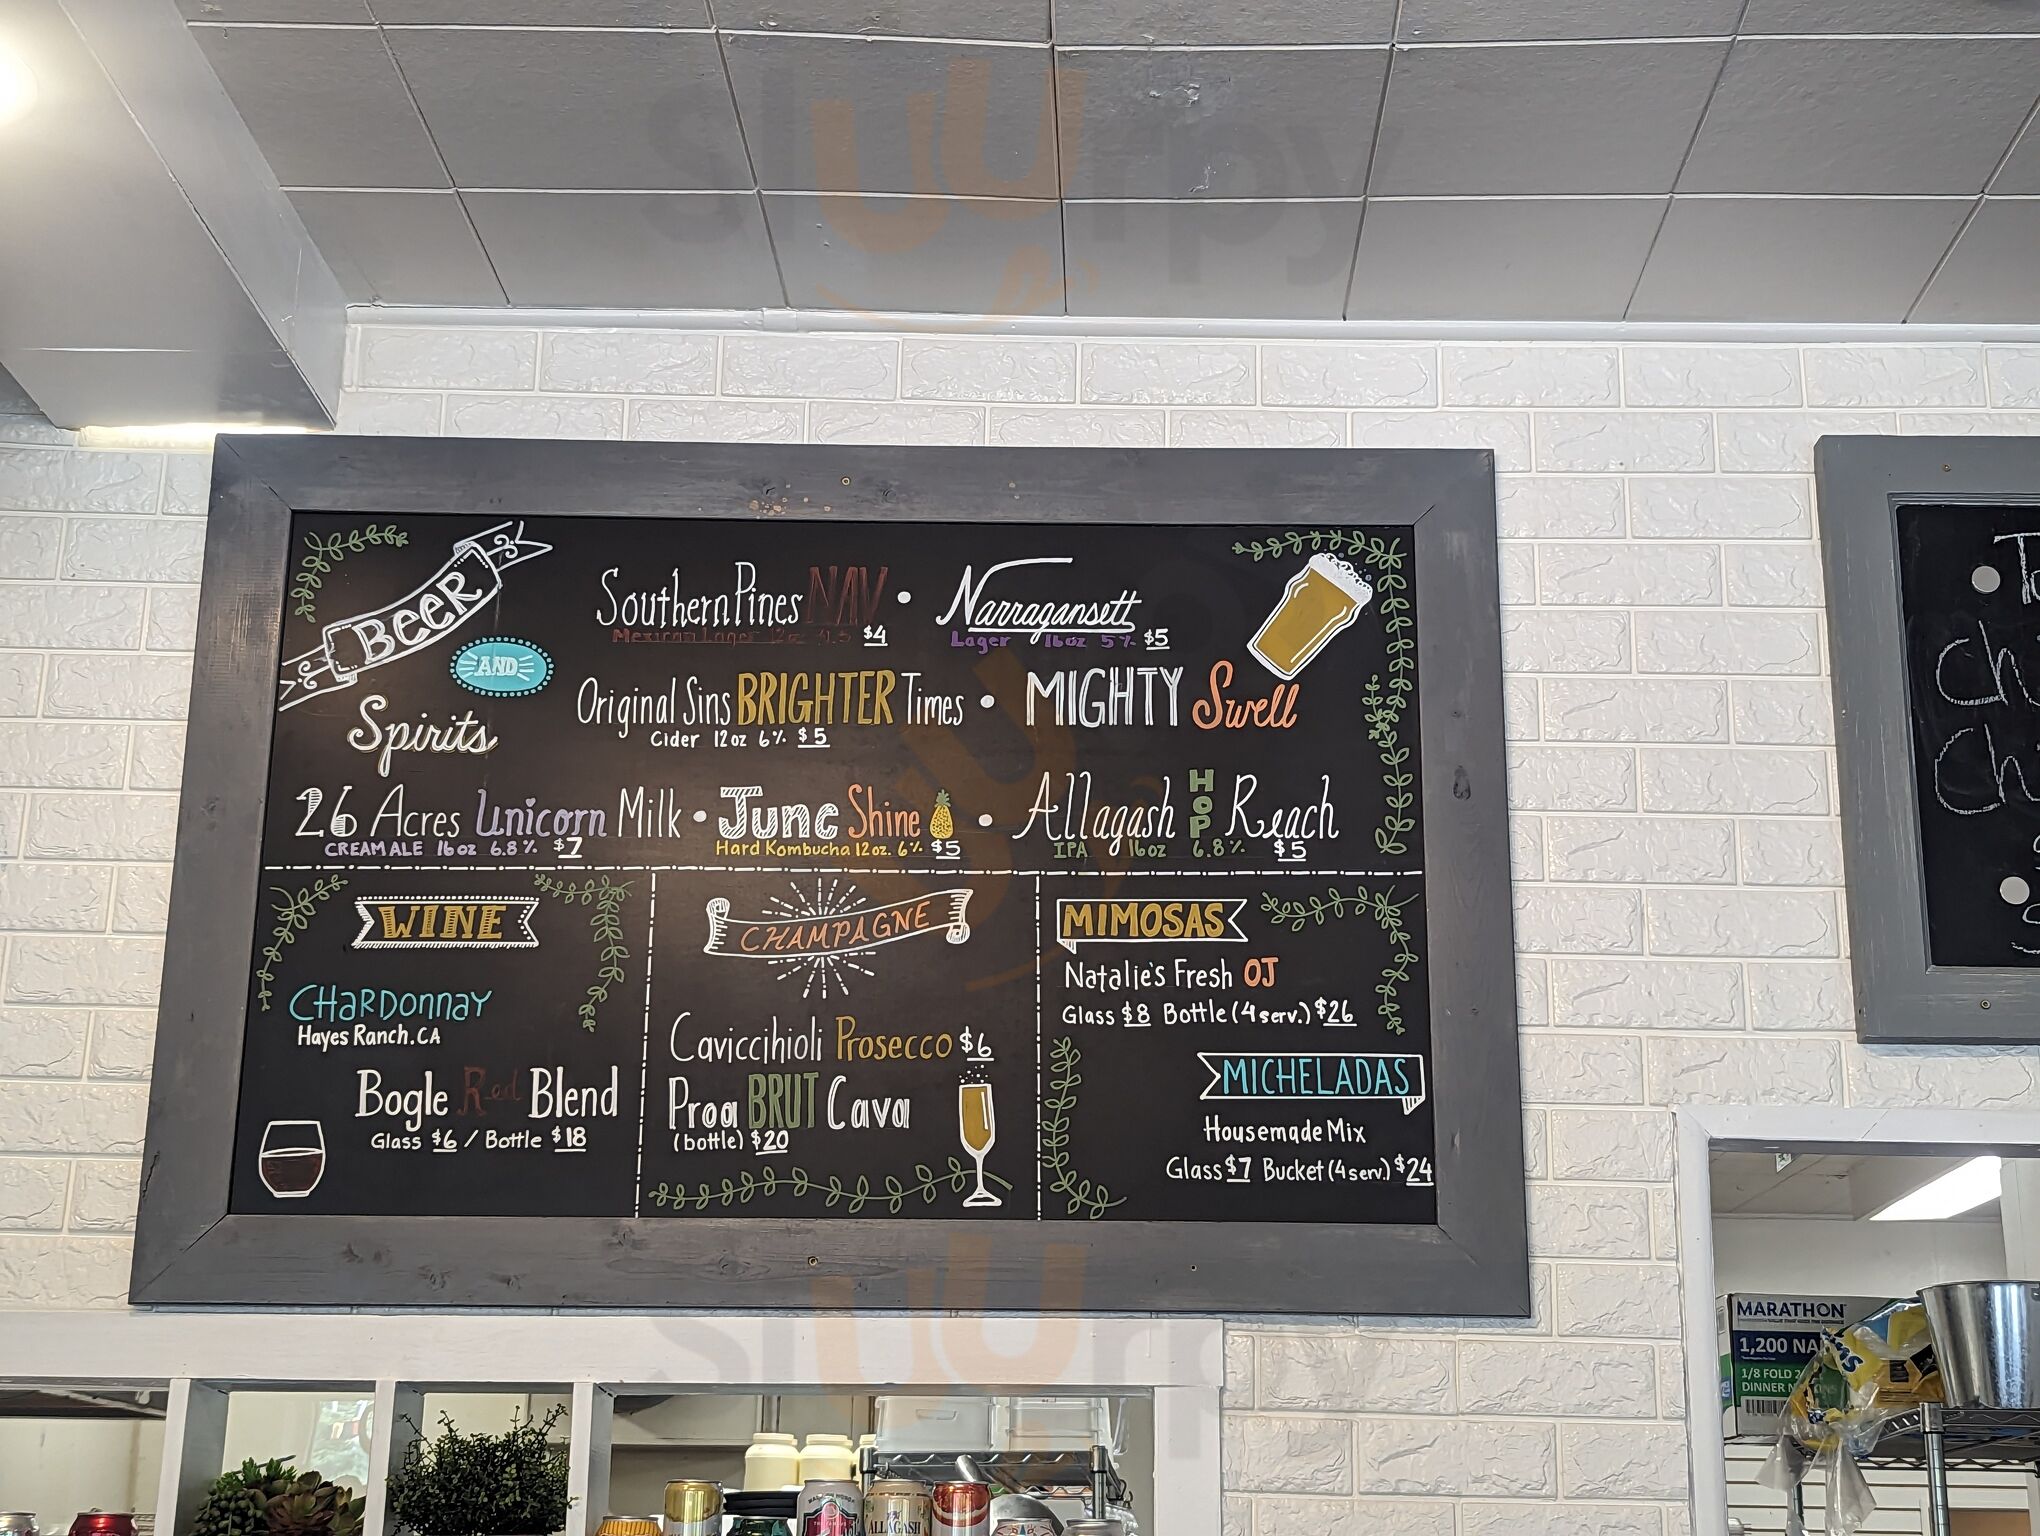 sluurpy
BEER
AND
Spirits
Southern Pines NAV • Narragansett
Mexican Lager 12oz 4.5 $4
Lager 16oz 5% $5
Original Sins BRIGHTER Times • MIGHTY Swell
Cider 12oz 6% $5
26 Acres Unicorn Milk • June Shine • Allagash HOP Reach
CREAM ALE 16oz 6.8% $7
Hard Kombucha 12oz. 6% $5
IPA 16oz 6.8% $5
WINE
CHARDONNAY
Hayes Ranch. CA
Bogle Red Blend
Glass $6 / Bottle $18
CHAMPAGNE
Caviccihioli Prosecco $6
Proa BRUT Cava
(bottle) $20
MIMOSAS
Natalie's Fresh OJ
Glass $8 Bottle (4 serv.) $26
MICHELADAS
Housemade Mix
Glass $7 Bucket (4 serv.) $24
MARATHON
1,200
1/8 FOLD
DINNER
ALLAGASH